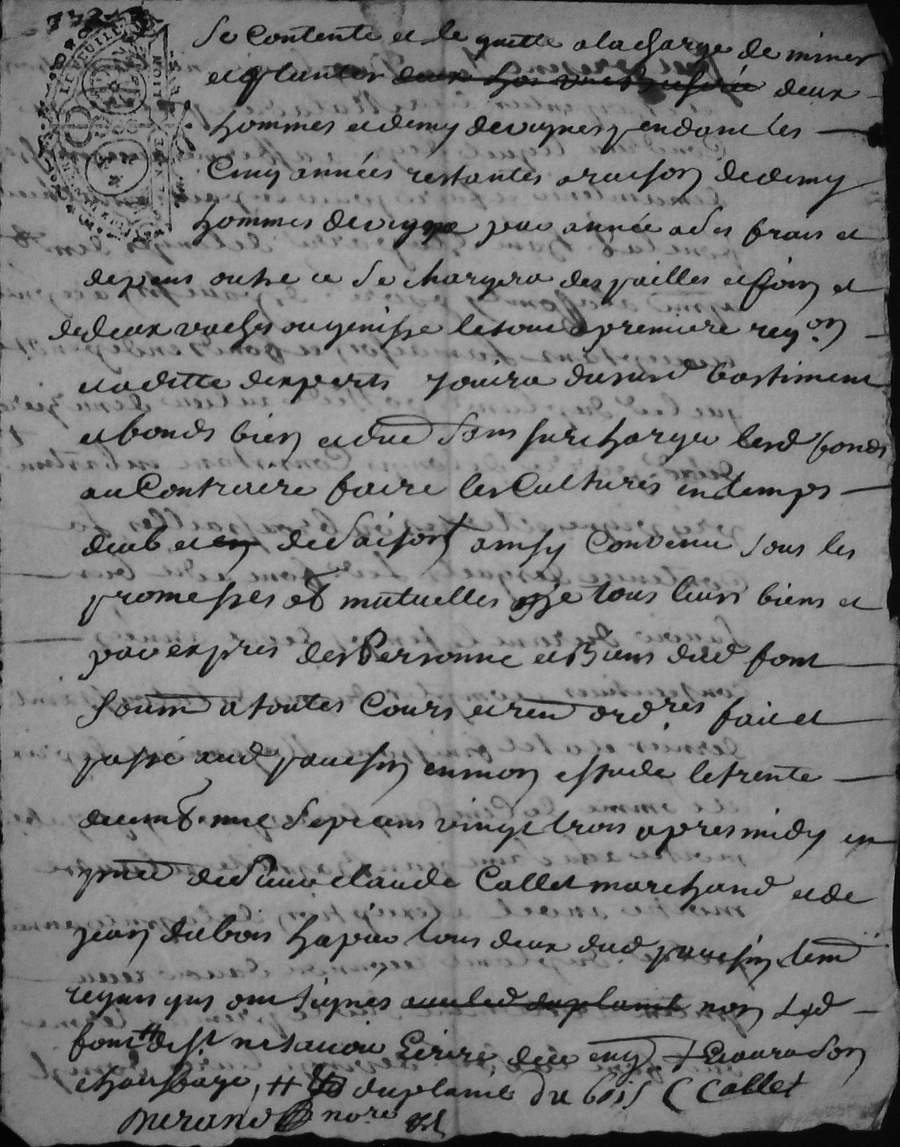 se contente et le quitte a la charge de miner
et planter deux
hommes et demy de vignes pendant les
cinq années restantes a raison de demy
hommes de vigne par année a ses frais et
depens outre ce se chargera des pailles et foin et
de deux vaches ou genisse le tout a premiere reqon
et a ditte d'experts jouira dususd bastiment
et fonds bien et due sans surcharger lesd fonds
au contraire faire les cultures en temps
deub et de saison ainsy convenu sous les
promesses mutuelles de tous leurs biens et
par expres des Personne et Biens dud font
soum a toutes Cours et ren ordres fait et
passé aud en mon estude le trente
decemb. mil sept cens vingt trois apres midy en
pnce de Sieur claude Callet marchand et de
jean dubois tous deux dud tem
requis qui ont signés non led
font de ne savoir Ecrire de ce enq
duplaint du bois C Callet
Durand nore